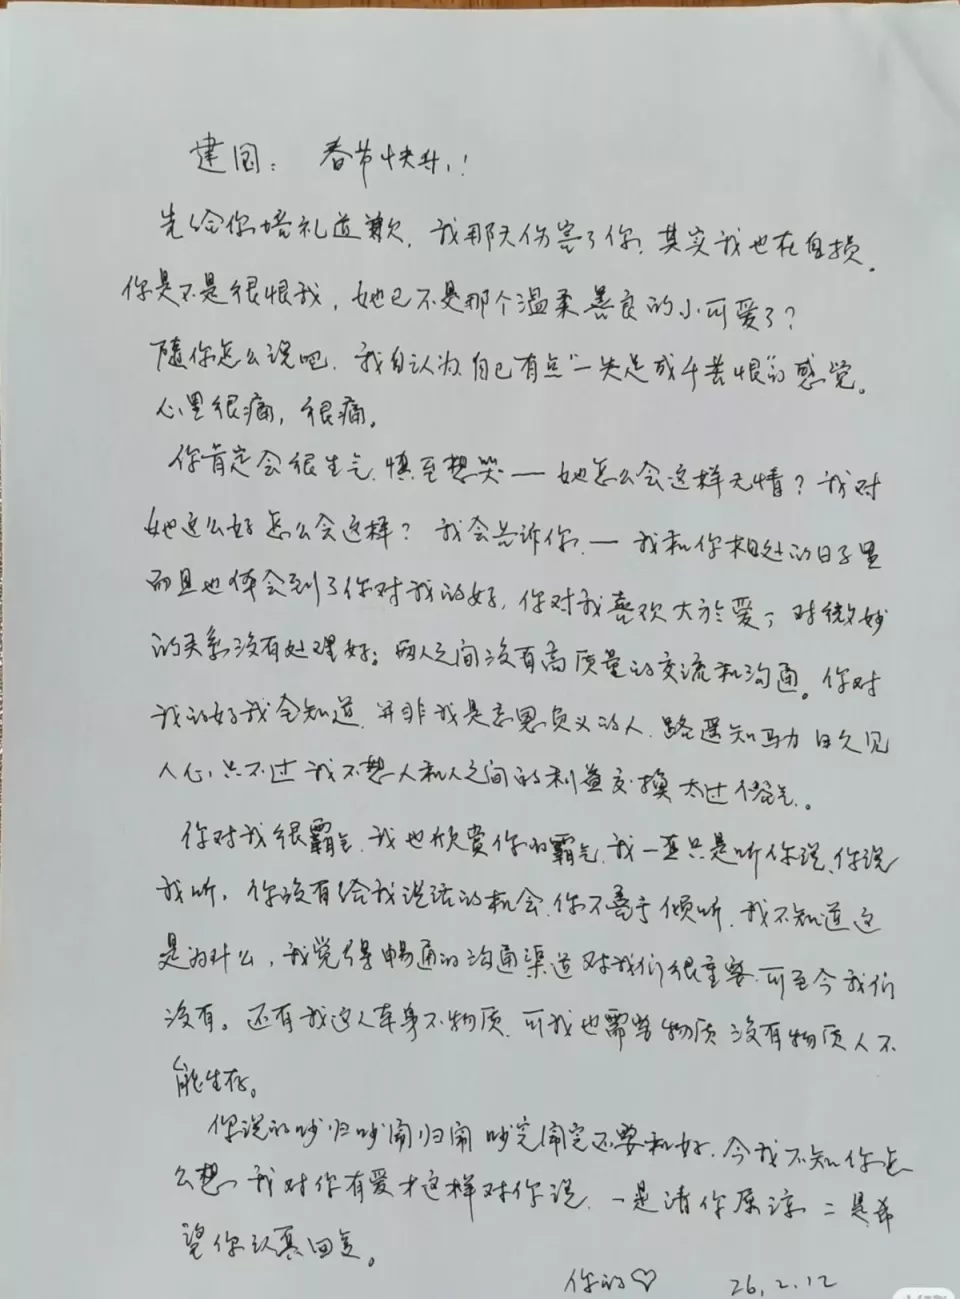 建国：春节快乐！
先给你赔礼道歉，我那天伤害了你，其实我也在自损。
你是不是很恨我，她已不是那个温柔善良的小可爱了？
随你怎么说吧，我自认为自己有点“一失足成千苦恨”的感觉。
心里很痛，很痛。
你肯定会很生气，慎至想哭——她怎么会这样无情？我对
她这么好怎么会这样？我会告诉你，——我和你相处的日子里
而且也体会到了你对我的好，你对我喜欢大於爱，对微妙
的关系没有处理好；两人之间没有高质量的交流和沟通。你对
我的好我全知道，并非我是忘恩负义的人，路遥知马力日久见
人心，只不过我不想人和人之间的利益交换太过俗气。
你对我很霸气，我也欣赏你的霸气，我一直只是听你说，你说
我听，你没有给我说话的机会，你不善于倾听，我不知道这
是为什么，我觉得畅通的沟通渠道对我们很重要，可至今我们
没有。还有我这人本身不物质，可我也需要物质，没有物质人不
能生存。
你说的吵归吵闹归闹，吵完闹完还要和好，今我不知你怎
么想，我对你有爱才这样对你说，一是请你原谅，二是希
望你认真回复。
你的♡ 26.2.12